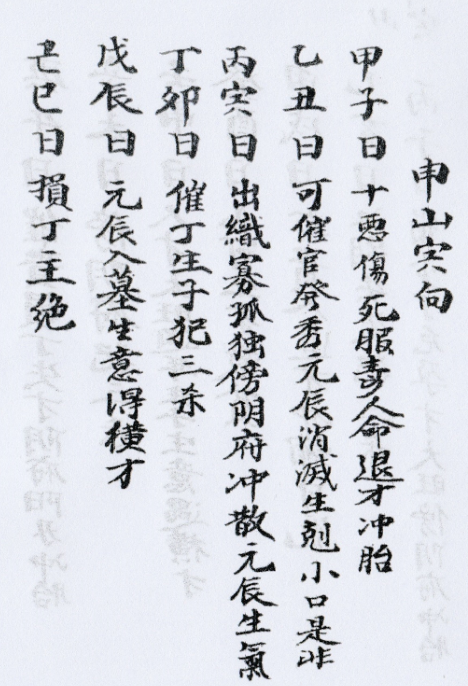 申山寅向
甲子日十悪傷死服毒人命退才冲胎
乙丑日可催官発秀元辰消滅生剋小口是非
丙寅日出孀寡孤独傍阴府冲散元辰生氣
丁卯日催丁生子犯三杀
戊辰日元辰入墓生意得横才
己巳日損丁主絶